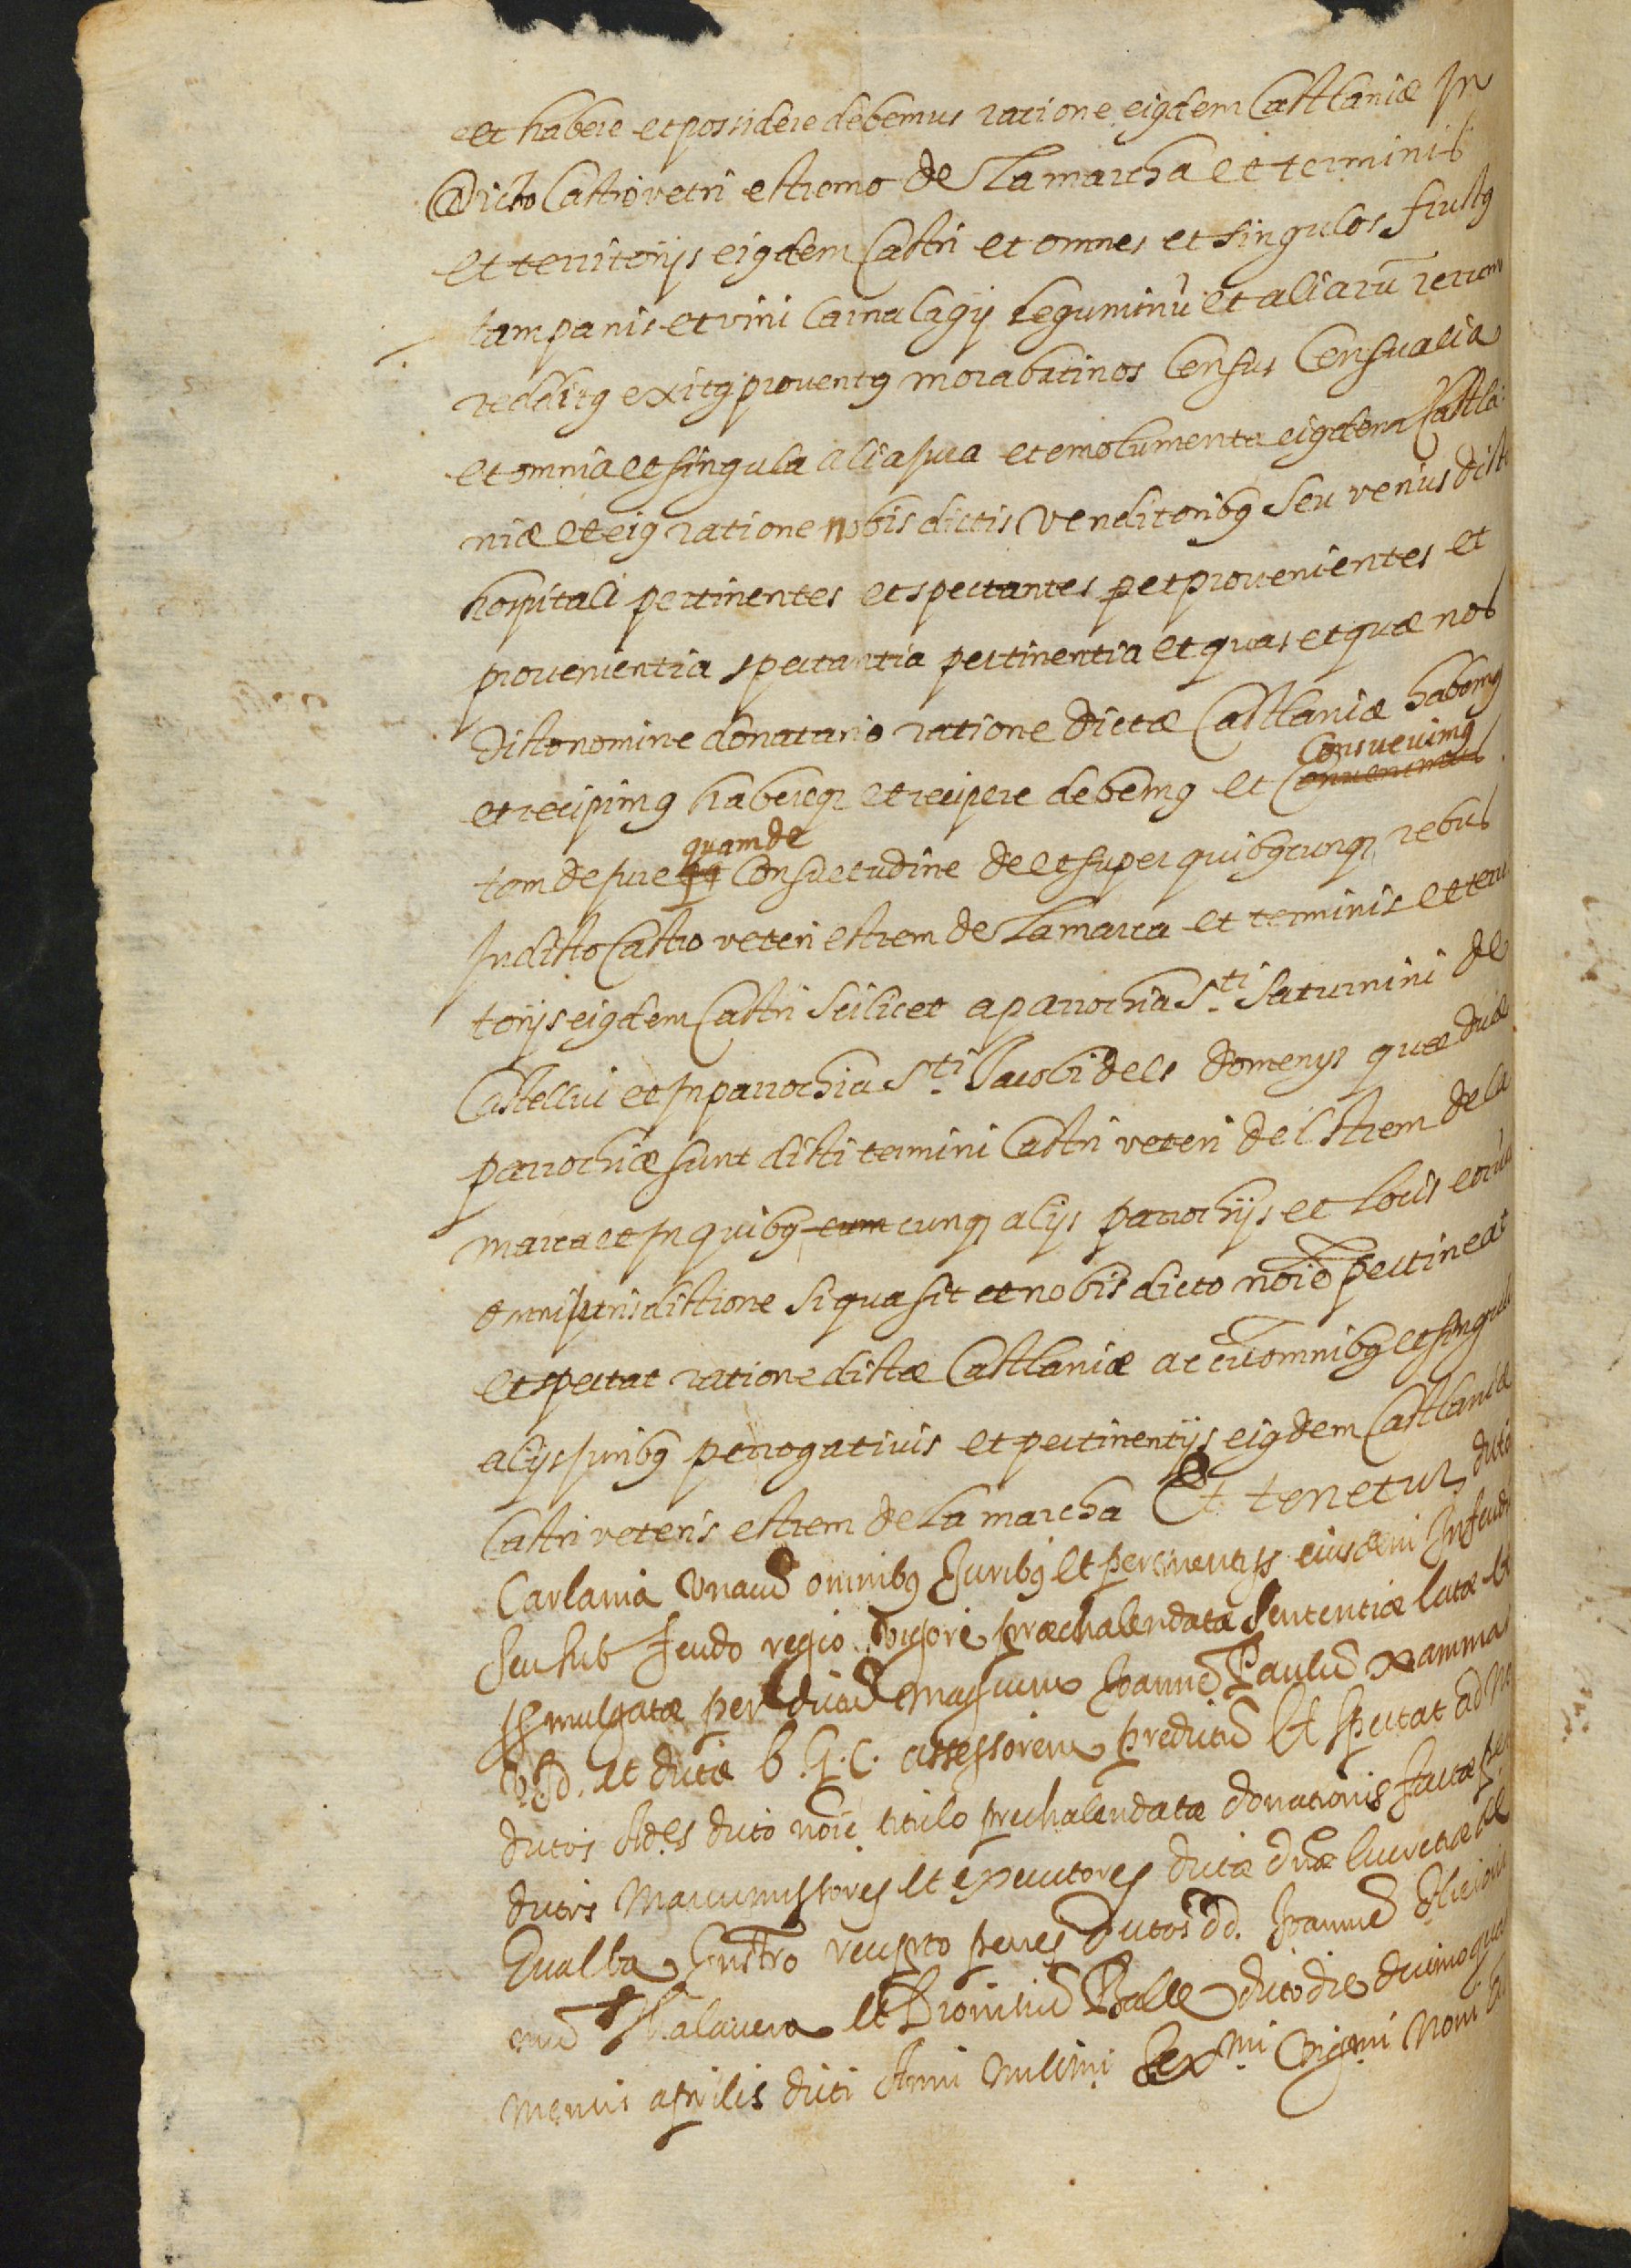 et habere et possidere debemus ratione eiꝰdem Castlaniæ In
dicto Castro vetri estremo de La marcha et terminis
et territorijs eiꝰdem Castri et omnes et singulos fructꝰ
tam panis et vini carnalagij leguminū et aliarū rerum
redditꝰ exitꝰ proventꝰ morabatinos census Censualia
et omnia et singula alia jura et emolumenta eiꝰdem Castla
niæ et eiꝰ ratione nobis dictis venditoribꝰ seu verius dicto
hospitali pertinentes et spectantes et provenientes et
provenientia spectantia pertinentia et quas et quæ nos
dicto nomine donatario ratione dictæ Castlaniæ habemꝰ
Consuevimꝰ
et recipimꝰ habereqꝫ et recipere debemꝰ et Convenimus
quam de
tam de jure qꝫ Consuetudine de et super quibꝰcunqꝫ rebus
In dicto Castro veteri estrem de La marca et terminis et terri
torijs eiꝰdem Castri scilicet a parrochia S.ti Saturnini de
Castellvi et In parrochia S.ti Jacobi dels domenys quæ duæ
parrochiæ sunt dicti termini Castri veteri del strem de la
marca et In quibꝰ cum cunqꝫ alijs parrochijs et locis eorū
omni jurisdictione si qua sit et nobis dicto noīe pertineat
et spectat ratione dictæ Castlaniæ ac cū omnibꝰ et singulis
alijs juribꝰ perrogativis et pertinentijs eiꝰdem Castlaniæ
Castri veteris estrem de La marcha Et tenetur dicta
Carlania unacū omnibꝰ Juribꝰ et pertinentijs eiusdem In feudū
seu sub feudo regio vigore præchalendatæ sententiæ latæ et
promulgatæ per dictū magcum Joannē Paulū Xammar
V.J.D. et dictæ b. G. C. assessorem predictū Et spectat ad No
dictos dicto noīe titulo prechalendatæ donationis factæ per
dictos Manumissores et executores dictæ dnæ Lucretiæ de
Gualba Instro recepto penes dictos dd. Joannē
Thalavera et Dionisiū Balle dicto die decimo qua
mensis aprilis dicti Anni millimi sexmi Trigmi Noni